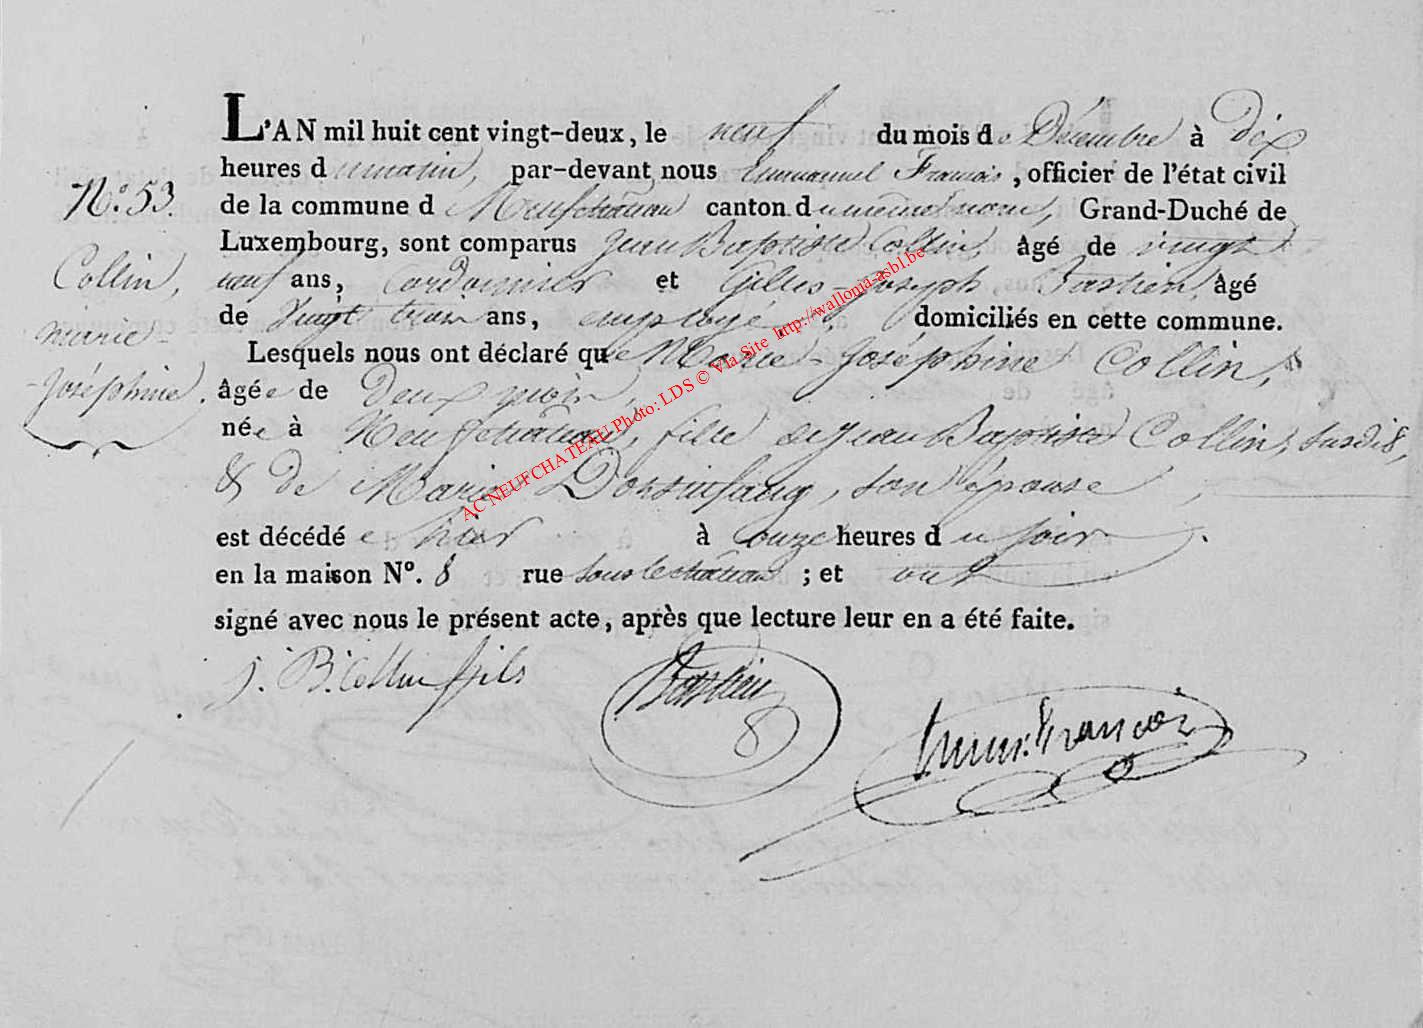 L'AN mil huit cent vingt-deux, le neuf du mois de Décembre à dix
heures du matin, par-devant nous Emmanuel François, officier de l'état civil
N.o 53.
de la commune de Neufchâteau canton du même nom, Grand-Duché de
Luxembourg, sont comparus Jean Baptiste Collin, âgé de vingt
Collin
neuf ans, Cordonnier et Gilles-Joseph Bastien, âgé
marie-
de Vingt trois ans, employé, & domiciliés en cette commune.
Lesquels nous ont déclaré que Marie-Joséphine Collin,
Joséphine.
âgée de Deux mois,
née à Neufchâteau, fille de Jean Baptiste Collin, susdit,
& de Marie son épouse
est décédée hier à onze heures du soir
en la maison No. 8 rue sous le château ; et ont
signé avec nous le présent acte, après que lecture leur en a été faite.
J. B. Collin fils
Bastien
Emm. François
AC NEUFCHATEAU Photo: LDS © Via Site http://walloma-asbl.be